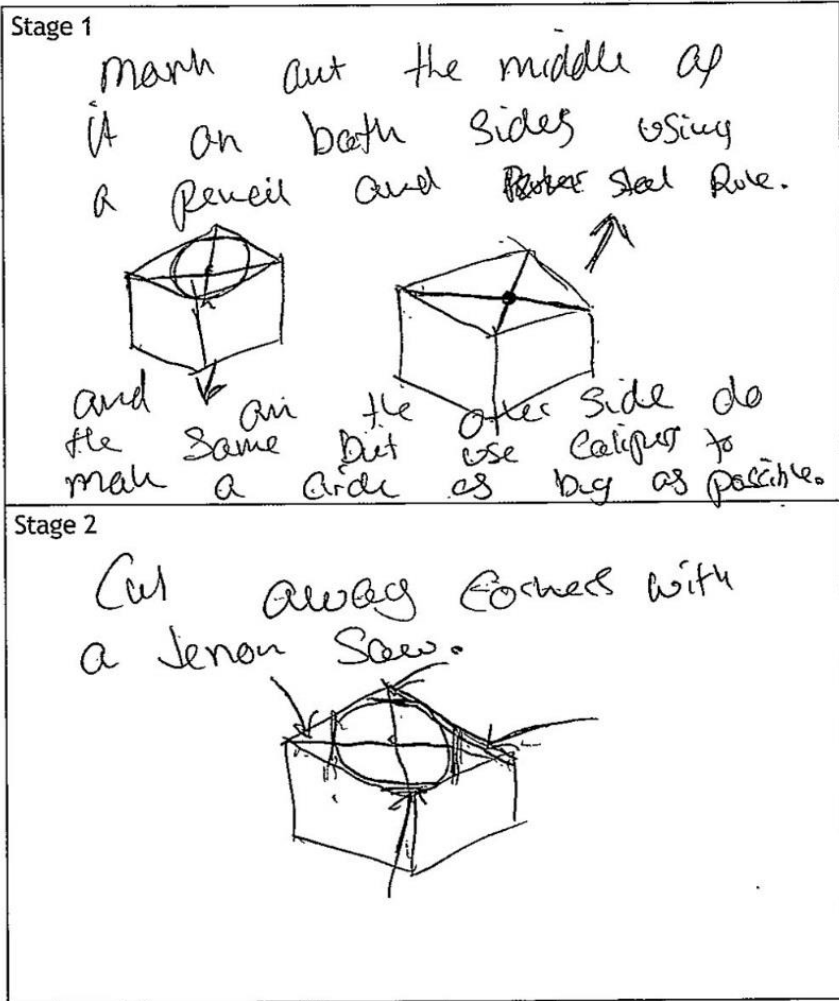 Stage 1
mark out the middle of
it on both sides using
a pencil and steel Rule.
and on the other side do
the same but use calipers to
mark a circle as big as possible.
Stage 2
Cut away corners with
a Tenon Saw.